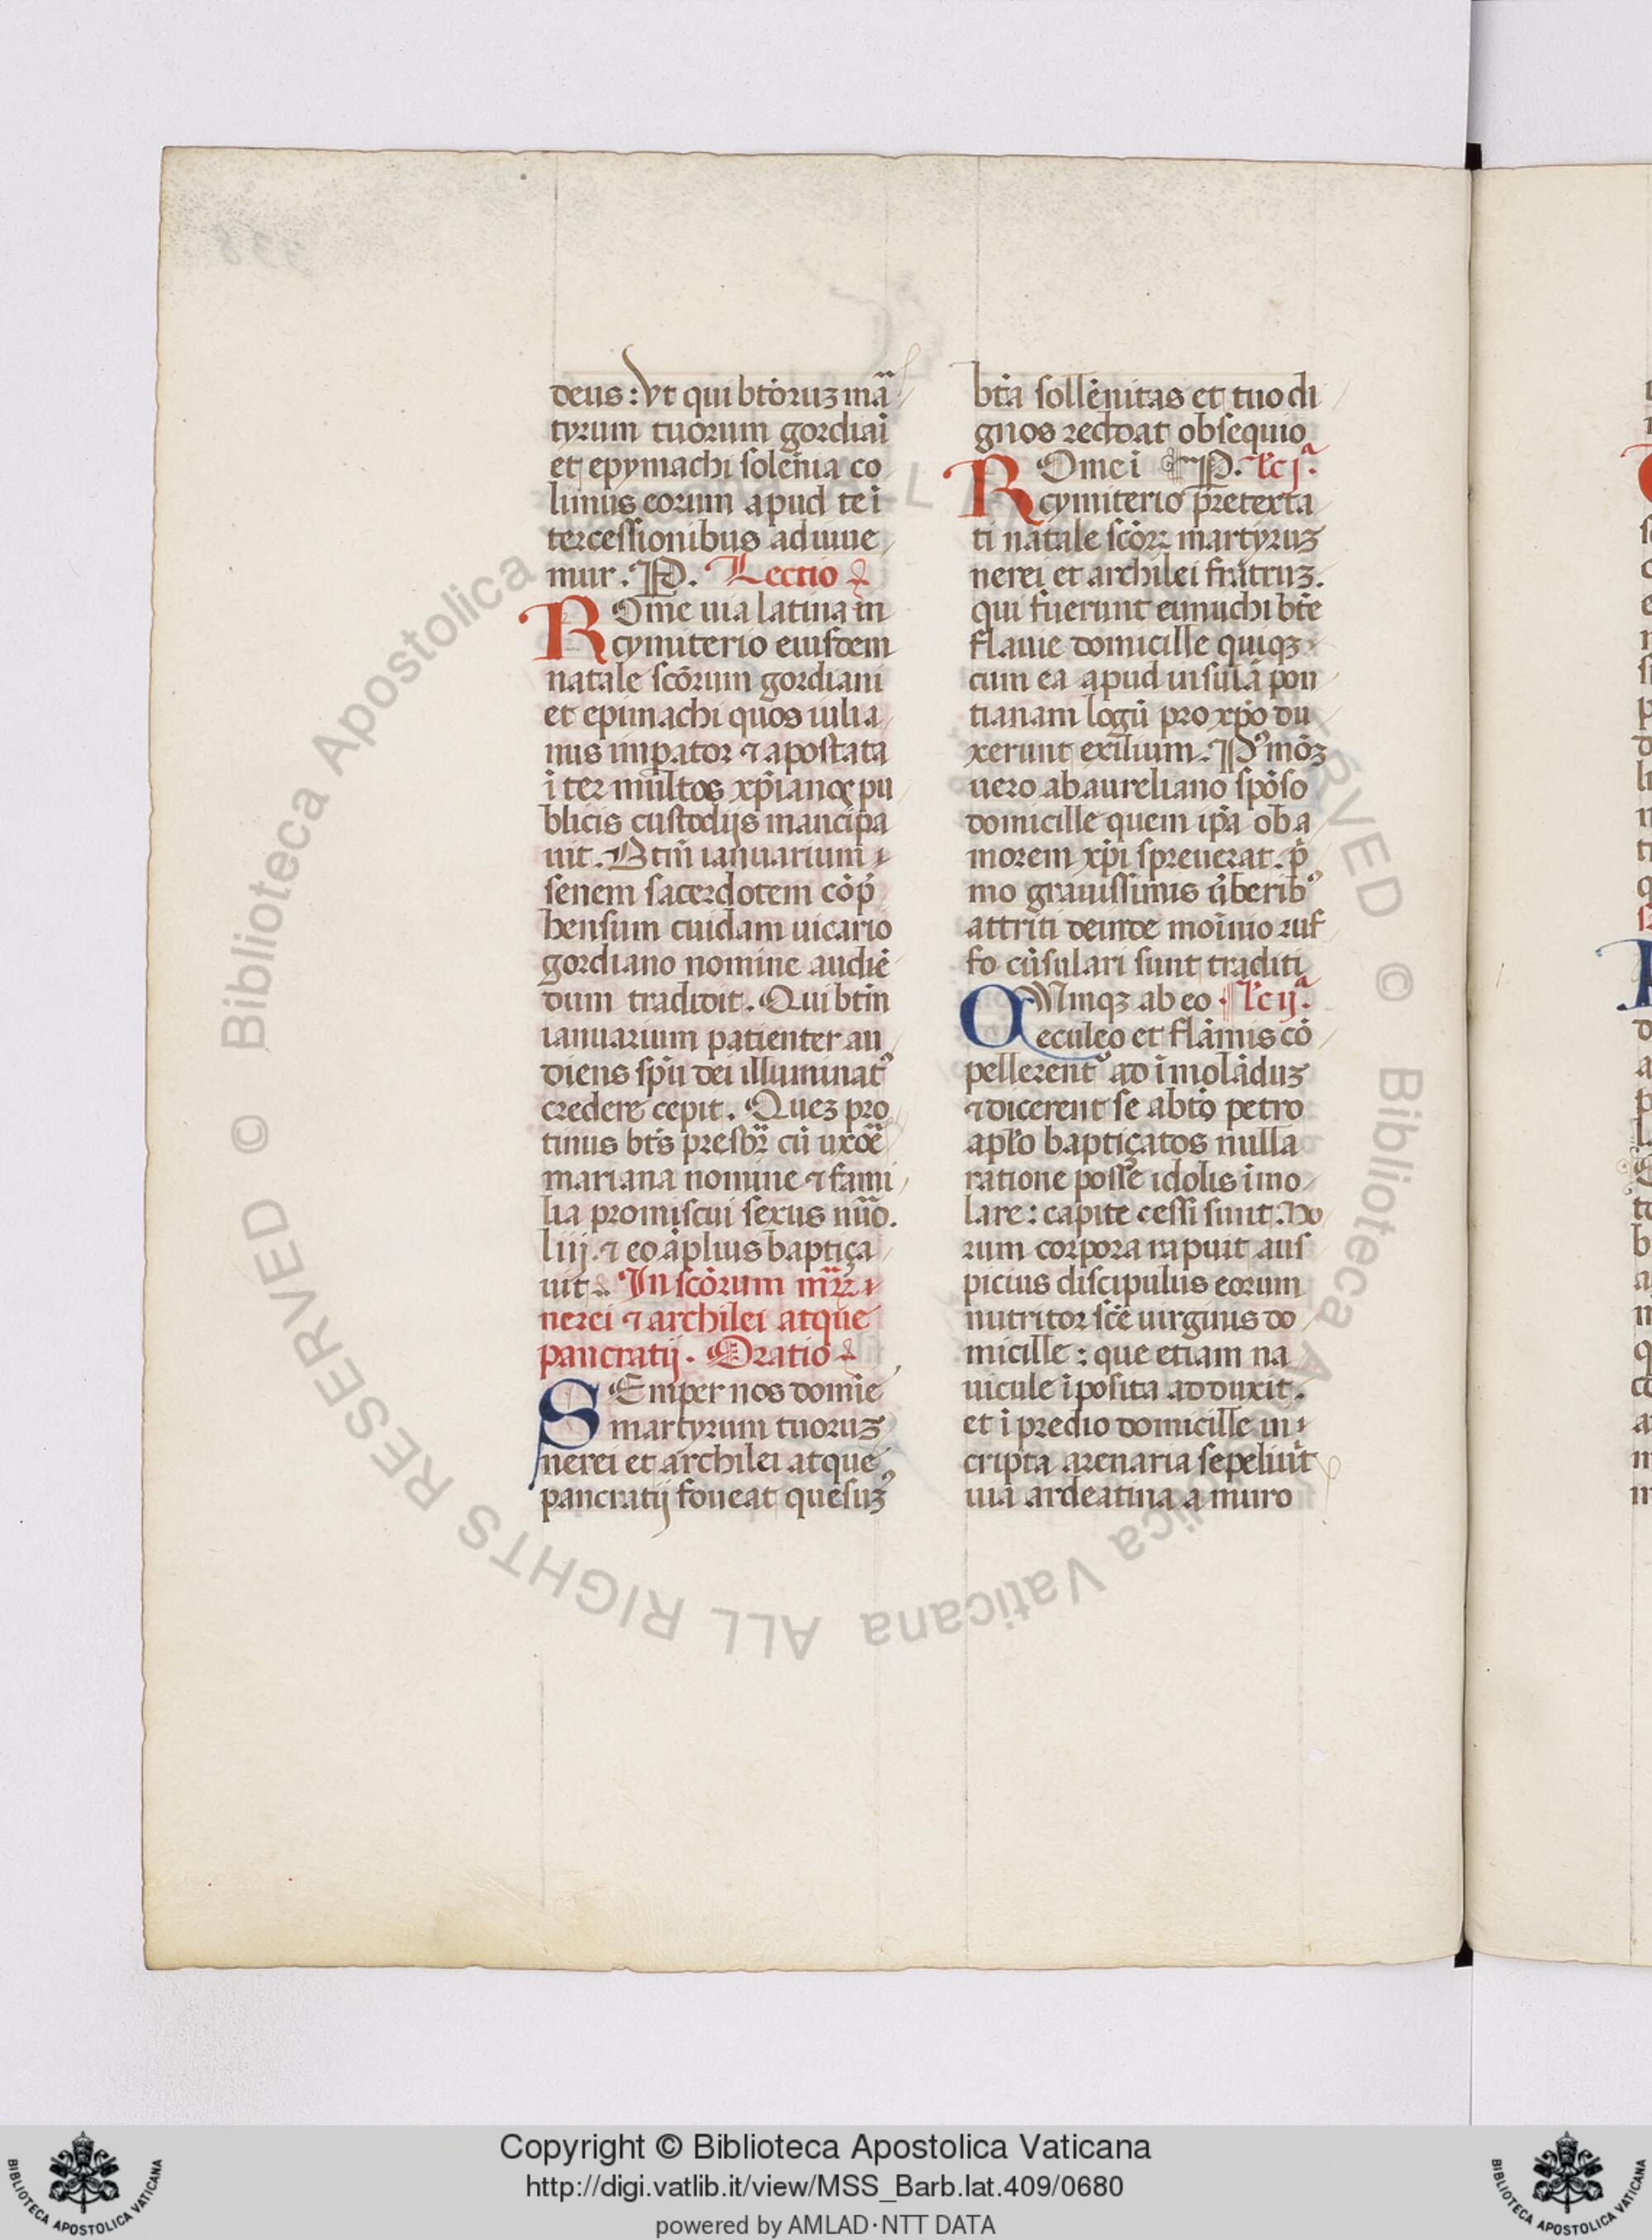 deus: vt qui btōruꝫ mar̄
tyrum tuorum gordiāi
et epymachi solēnia co
limus eorum apud te ī
tercessionibus adiuue
mur. P. Lectio
ROme uia latina in
cymiterio eiusdem
natale scōrum gordiani
et epimachi quos iulia
nus imꝑator ⁊ apostata
īter multos xp̄ianos pu
blicis custodijs mancipa
uit. Btm̄ ianuarium
senem sacerdotem cōp̄
hensum cuidam uicario
gordiano nomine audiē
dum tradidit. Qui btm̄
ianuarium patienter au
diens sp̄u dei illuminatꝰ
credere cepit. Queꝫ pro
tinus bt̄s presbr̄ cū uxoē
mariana nomine ⁊ fami
lia promiscui sexus nūo.
liij. ⁊ eo āplius baptiça
uit. In scōrum mr̄ꝝ
nerei ⁊ archilei atque
pancratij. Oratio
SEmper nos domīe
martyrum tuoruꝫ
nerei et archilei atque
pancratij foueat quesuꝫꝰ
bt̄a sollēnitas et tuo di
gnos reddat obsequio
ROme ī P. Lc̄ jᵃ.
cymiterio pretexta
ti natale scōꝝ martyruꝫ
nerei et archilei fr̄atruꝫ.
qui fuerunt eunuchi bt̄e
flauie domicille quiqꝫ
cum ea apud insulā pon
tianam logū pro xp̄o du
xerunt exilium. Pꝰmōꝫ
uero ab aureliano spōso
domicille quem ip̄a ob a
morem xp̄i spreuerat. p̄
mo grauissimis ūberibꝰ
attriti deinde moīnio ruf
fo cūsulari sunt traditi
QVinqꝫ ab eo Lc̄ ijᵃ.
eculeo et flāmis cō
pellerentꝰ ad īmolāduꝫ
⁊ dicerent se a bt̄o petro
apl̄o baptiçatos nulla
ratione posse idolis īmo
lare: capite cessi sunt. Ho
rum corpora rapuit aus
picius discipulus eorum
nutritor scē uirginis do
micille: que etiam na
uicule īposita adduxit.
et ī predio domicille in
cripta arenaria sepeliūt
uia ardeatina a muro
Copyright © Biblioteca Apostolica Vaticana
http://digi.vatlib.it/view/MSS_Barb.lat.409/0680
powered by AMLAD·NTT DATA
BIBLIOTECA APOSTOLICA VATICANA
BIBLIOTECA APOSTOLICA VATICANA
© Biblioteca Apostolica Vaticana ALL RIGHTS RESERVED